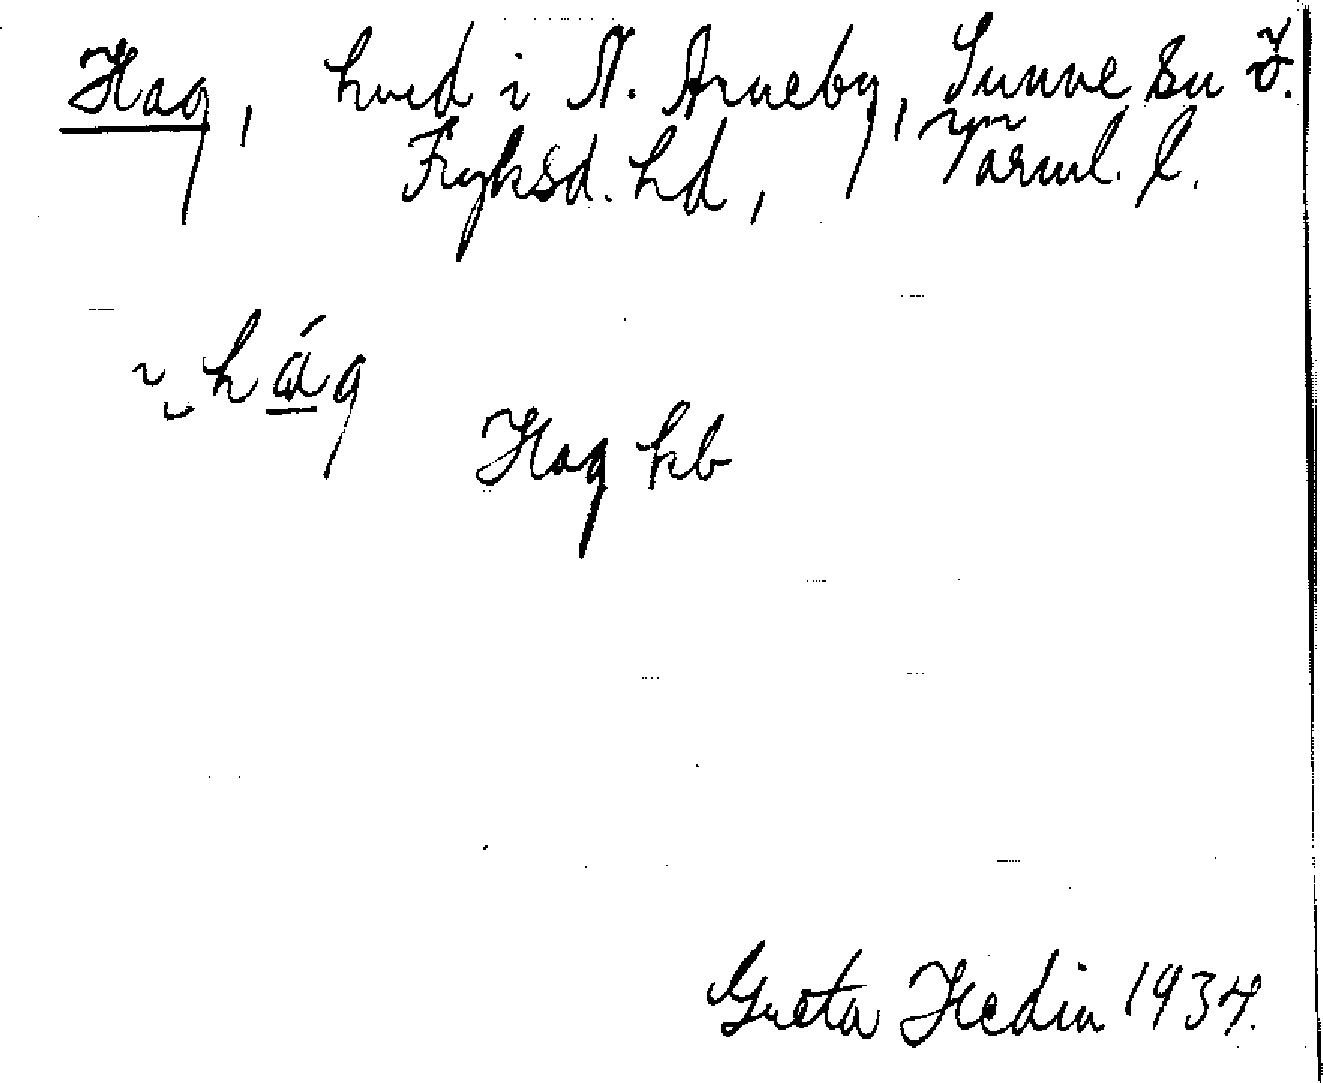 Hag, hvd i N. Arneby, Sunne sn F.
Fryksd. hd, Värml. l.
hág
Hag kb
Greta Hedin 1934.